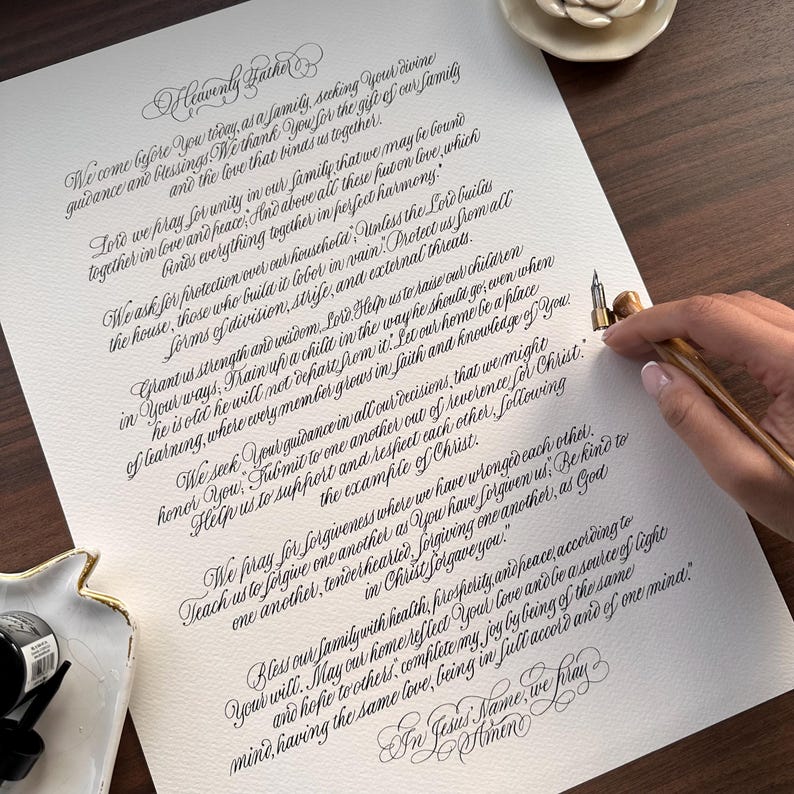 Heavenly Father
We come before You today, as a family, seeking Your divine
guidance and blessings. We thank You for the gift of our family
and the love that binds us together.
Lord we pray for unity in our family, that we may be bound
together in love and peace; "And above all these put on love, which
binds everything together in perfect harmony."
We ask for protection over our household; "Unless the Lord builds
the house, those who build it labor in vain." Protect us from all
forms of division, strife, and external threats.
Grant us strength and wisdom, Lord. Help us to raise our children
in Your ways; "Train up a child in the way he should go; even when
he is old he will not depart from it." Let our home be a place
of learning, where every member grows in faith and knowledge of You.
We seek Your guidance in all our decisions, that we might
honor You; "Submit to one another out of reverence for Christ."
Help us to support and respect each other, following
the example of Christ.
We pray for forgiveness where we have wronged each other.
Teach us to forgive one another as You have forgiven us; "Be kind to
one another, tenderhearted, forgiving one another, as God
in Christ forgave you."
Bless our family with health, prosperity, and peace, according to
Your will. May our home reflect Your love and be a source of light
and hope to others; "complete my joy by being of the same
mind, having the same love, being in full accord and of one mind."
In Jesus Name, we pray
Amen